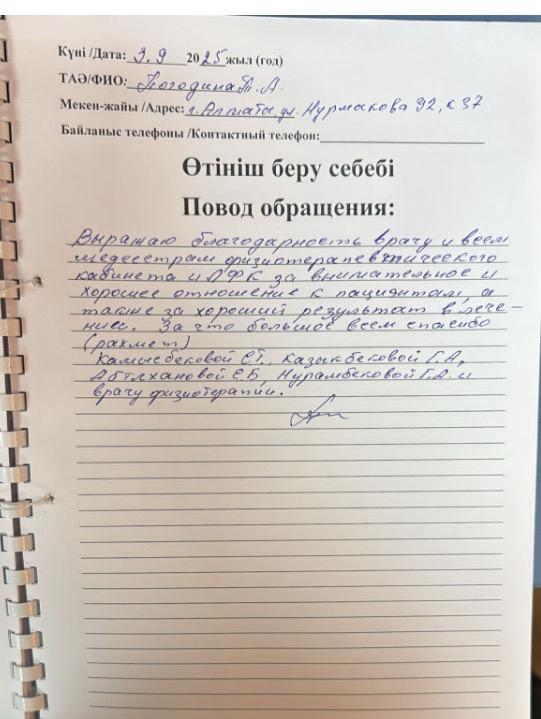 Күні /Дата: 3.9 2025 жыл (год)
ТАӘ/ФИО: Погодина Т.А.
Мекен-жайы /Адрес: г. Алматы, ул. Нурмакова 92, к 37
Байланыс телефоны /Контактный телефон:
Өтініш беру себебі
Повод обращения:
Выражаю благодарность врачу и всем
медсестрам физиотерапевтического
кабинета и ЛФК за внимательное и
хорошее отношение к пациентам, а
также за хороший результат в лече-
нии. За что большое всем спасибо
(рахмет)
Камысбековой С.Т., Казыкбековой Г.А,
Абтахановой С.Б, Нурамбековой Г.А. и
врачу физиотерапии.